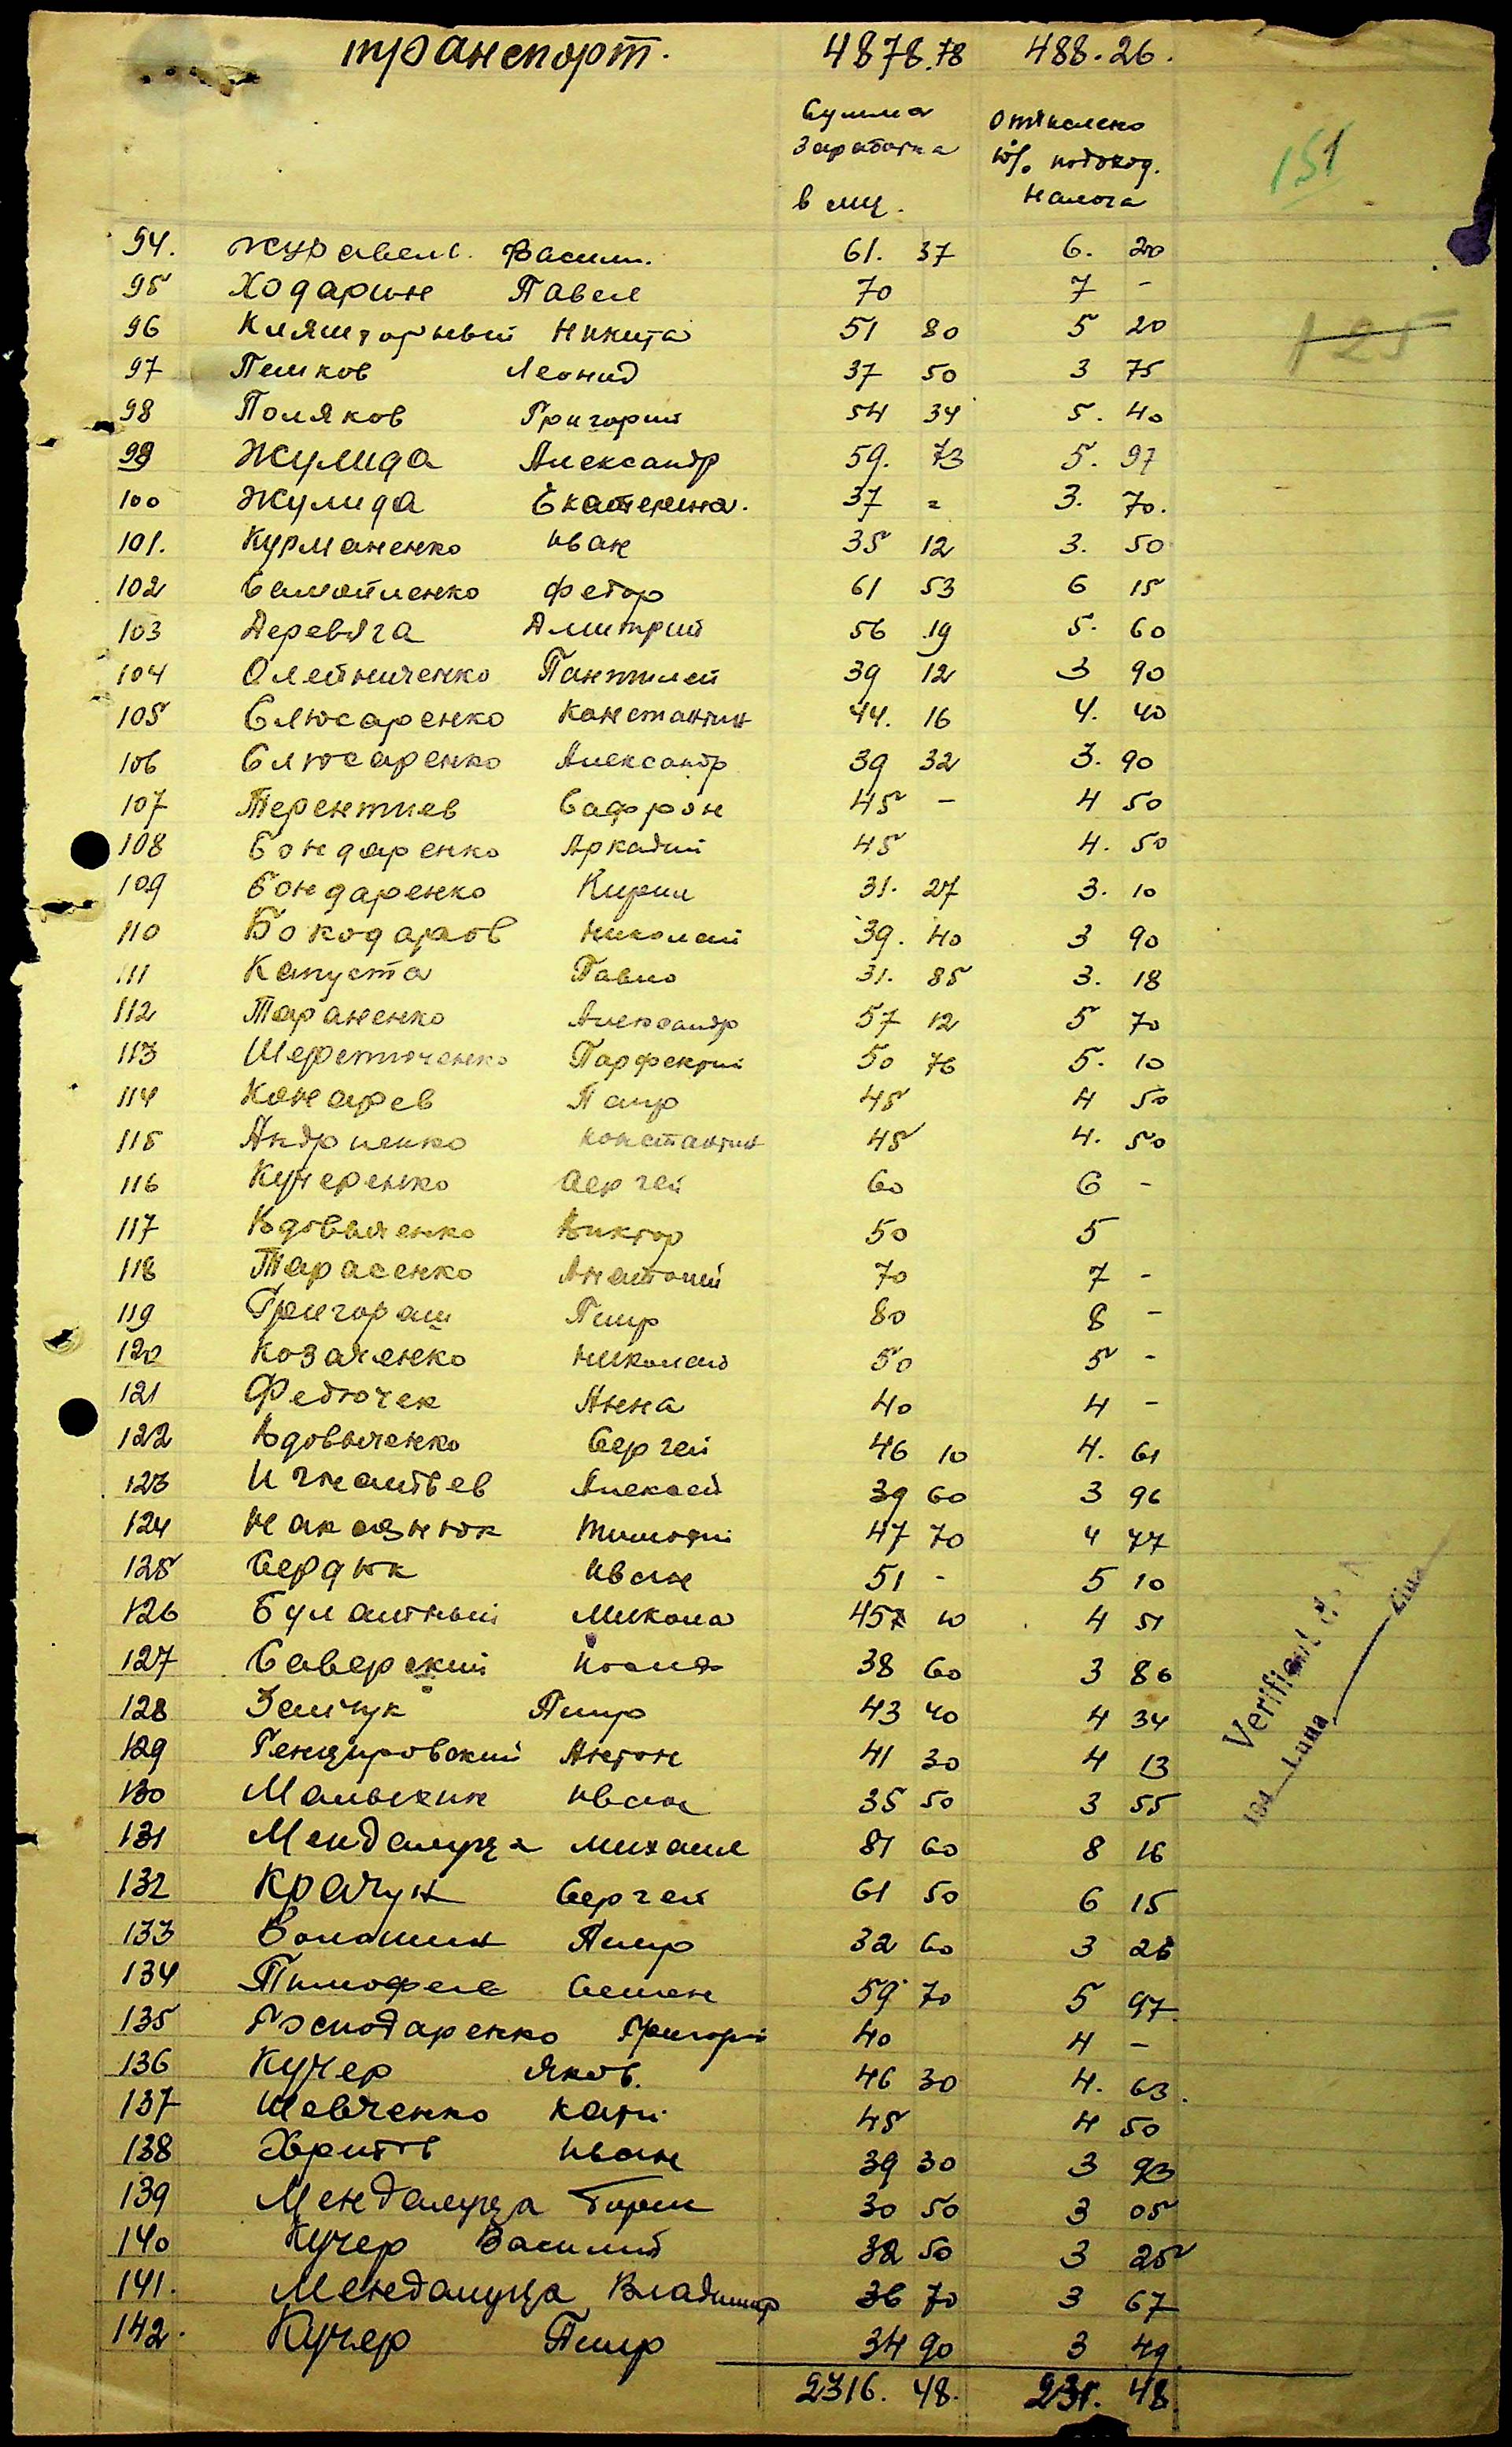 транспорт. 4878.78 488.26.
Сумма заработка в мц. отчислено 10% подоход. налога
151
125
94. Журавель Васили. 61. 37 6. 20
95 Ходарин Павел 70 7 -
96 Никита 51 80 5 20
97 Пешков Леонид 37 50 3 75
98 Поляков Григорий 54 34 5. 40
99 Жулида Александр 59. 73 5. 97
100 Жулида Екатерина. 37 = 3. 70.
101. Курманенко Иван 35 12 3. 50
102 Самойленко Федор 61 53 6 15
103 Деревяга Дмитрий 56 19 5. 60
104 Олейниченко Пантилей 39 12 3 90
105 Слюсаренко Константин 44. 16 4. 40
106 Слюсаренко Александр 39 32 3. 90
107 Терентиев Сафрон 45 - 4 50
108 Бондаренко Аркадий 45 4. 50
109 Бондаренко Кирил 31. 27 3. 10
110 Бокодаров Николай 39. 40 3 90
111 Капуста Павло 31. 85 3. 18
112 Тараненко Александр 57 12 5 70
113 Шеретюченко 50 76 5. 10
114 Конарев Петр 45 4 50
115 Андриенко Константин 45 4. 50
116 Кучеренко Сергей 60 6 -
117 Вдовыченко Виктор 50 5
118 Тарасенко Анатолий 70 7 -
119 Григораш Петр 80 8 -
120 Козаченко Николай 50 5 -
121 Федючек Анна 40 4 -
122 Вдовыченко Сергей 46 10 4. 61
123 Игнатьев Алексей 39 60 3 96
124 Наказнюк Тимофтi 47 70 4 77
125 Сердюк Иван 51 - 5 10
126 Булатный Микола 45 10 4 51
127 Саверский 38 60 3 86
128 Земчук Петр 43 40 4 34
129 Антон 41 30 4 13
130 Малыхин Иван 35 50 3 55
131 Мендалуца Михаил 81 60 8 16
132 Крачун Сергей 61 50 6 15
133 Волошин Петр 32 60 3 26
134 Тимофеев Семен 59 70 5 97
135 Господаренко Григорi 40 4 -
136 Кучер Яков. 46 30 4. 63.
137 Шевченко 45 4 50
138 Христов Иван 39 30 3 93
139 Мендалуца 30 50 3 05
140 Кучер Василий 32 50 3 25
141. Мендалуца Владимир 36 70 3 67
142. Кучер Петр 34 90 3 49
2316. 48. 231. 48
Verificat
194 Luna Ziua